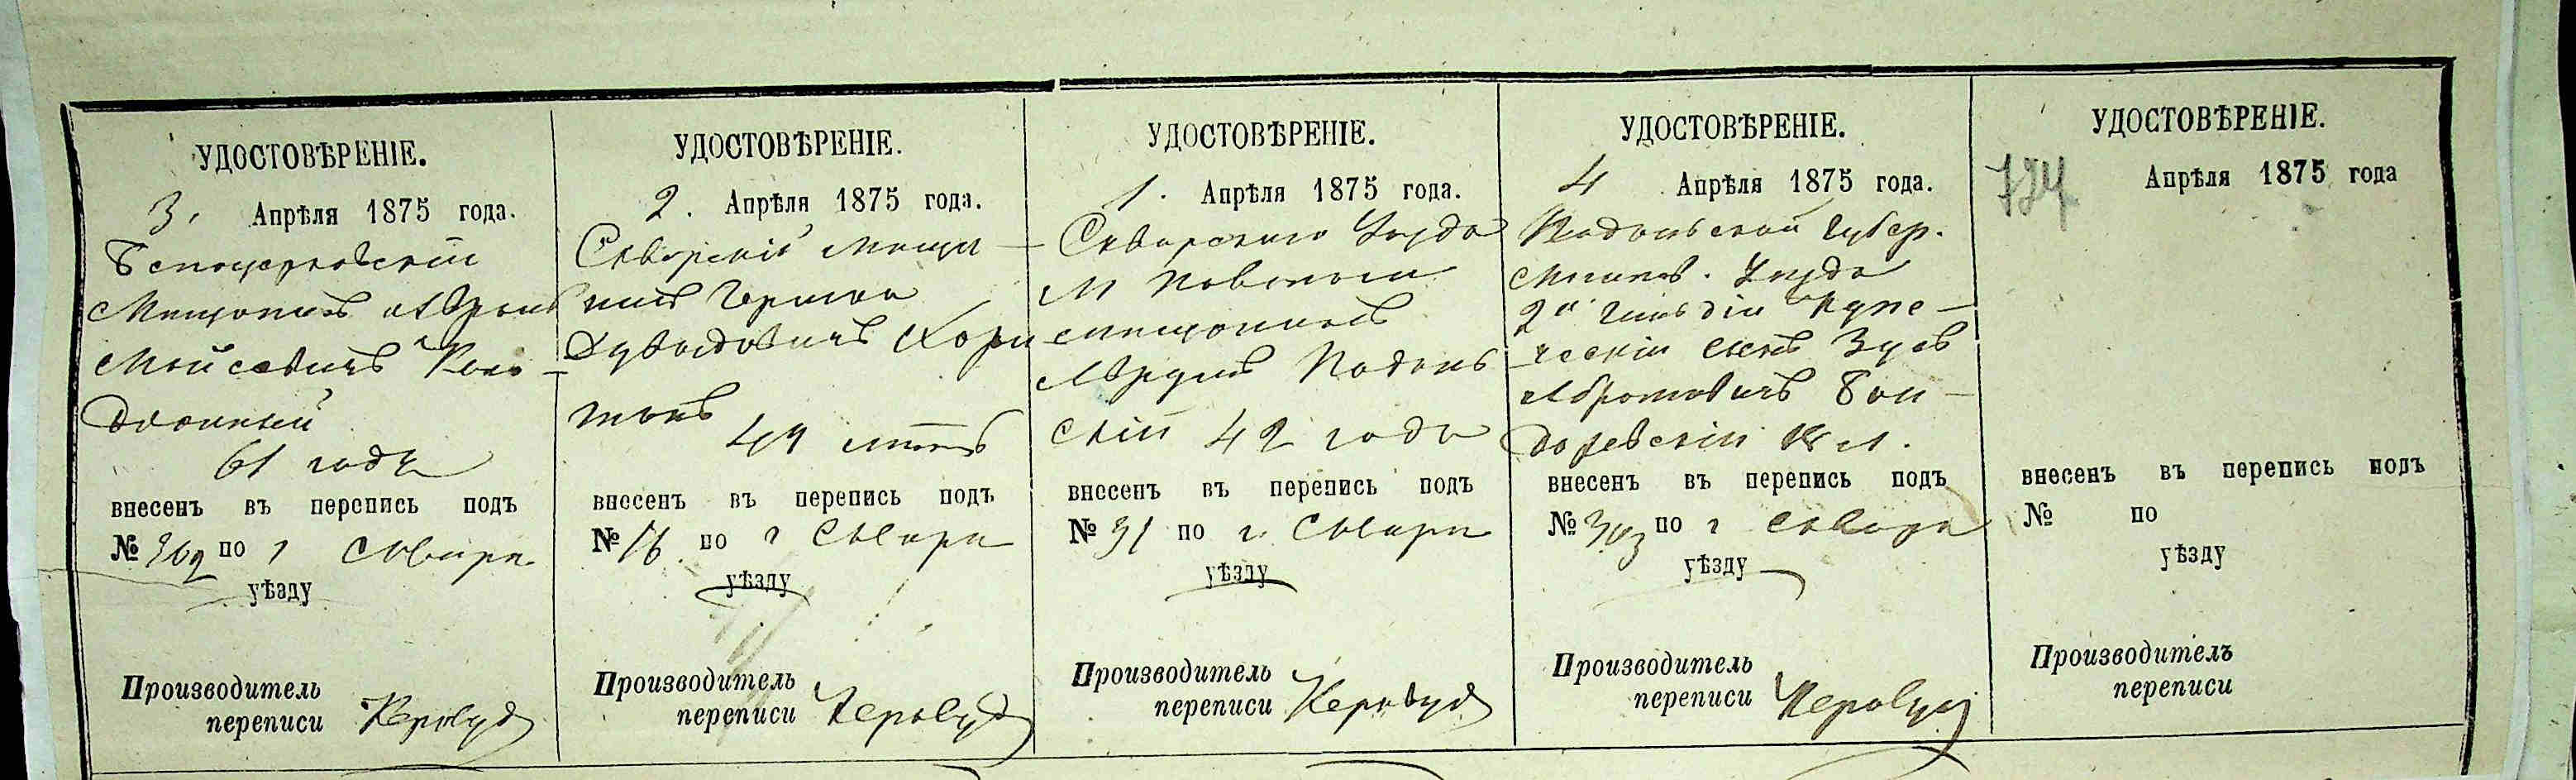 УДОСТОВѢРЕНІЕ.
3. Апрѣля 1875 года.
Белоцерковскій
Мещанинъ Аврамъ
Мойсеевичъ Коло-
дязный
61 года
внесенъ въ перепись подъ
№ 302 по г Сквири
уѣзду
Производитель
переписи
УДОСТОВѢРЕНІЕ.
2. Апрѣля 1875 года.
Сквирскій меща-
нинъ Гершко
Дувидовичъ Хари
тонъ
49 летъ
внесенъ въ перепись подъ
№ 16 по г Сквири
уѣзду
Производитель
переписи
УДОСТОВѢРЕНІЕ.
1. Апрѣля 1875 года.
Сквирскаго Уезда
М
мещанинъ
Подоль
скій 42 года
внесенъ въ перепись подъ
№ 31 по г. Сквири
уѣзду
Производитель
переписи
УДОСТОВѢРЕНІЕ.
4 Апрѣля 1875 года.
Подольской Губер.
Уезда
2й Гильдіи Купе-
ческій сынъ Зусь
Абрамовичъ Бон-
даревскій 18 л.
внесенъ въ перепись подъ
№ 303 по г Сквири
уѣзду
Производитель
переписи
УДОСТОВѢРЕНІЕ.
Апрѣля 1875 года
внесенъ въ перепись подъ
№ по
уѣзду
Производитель
переписи